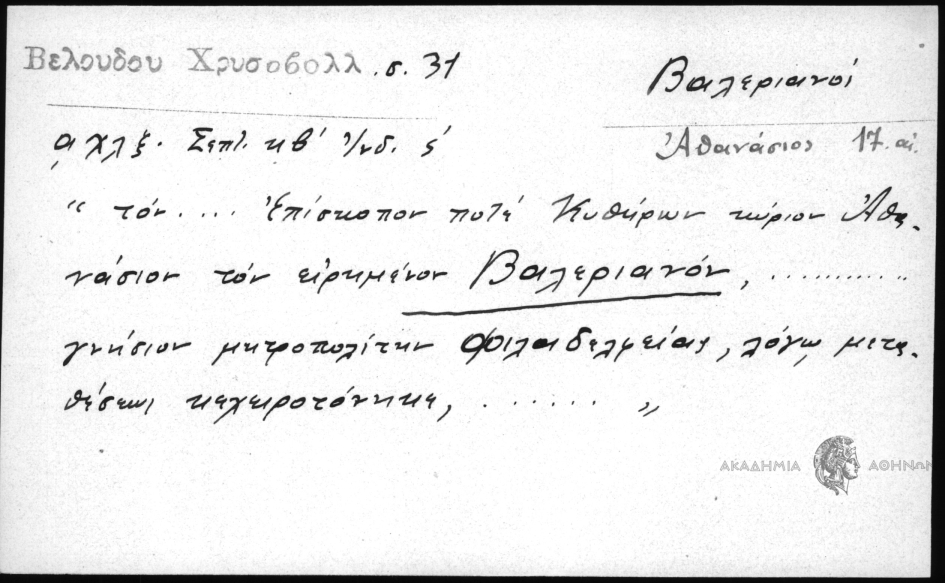 Βελουδου Χρυσοβολλ .σ. 31
Βαλεριανοί
Ἀθανάσιος 17. αἰ.
αχλξ. Σεπτ. κβ΄ Ἰνδ. ς΄
“ τόν .... Ἐπίσκοπον ποτέ Κυθήρων κύριον Ἀθα-
νάσιον τόν εἰρημένον Βαλεριανόν, ............
γνήσιον μητροπολίτην Φιλαδελφείας, λόγῳ μετα-
θέσεως κεχειροτόνηκε, ...... „
ΑΚΑΔΗΜΙΑ ΑΘΗΝΩΝ